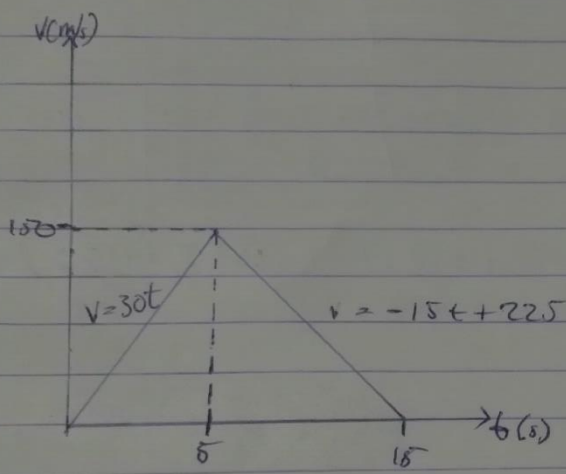 v(m/s)
150
v=30t
v = -15t+225
5
15
t(s)